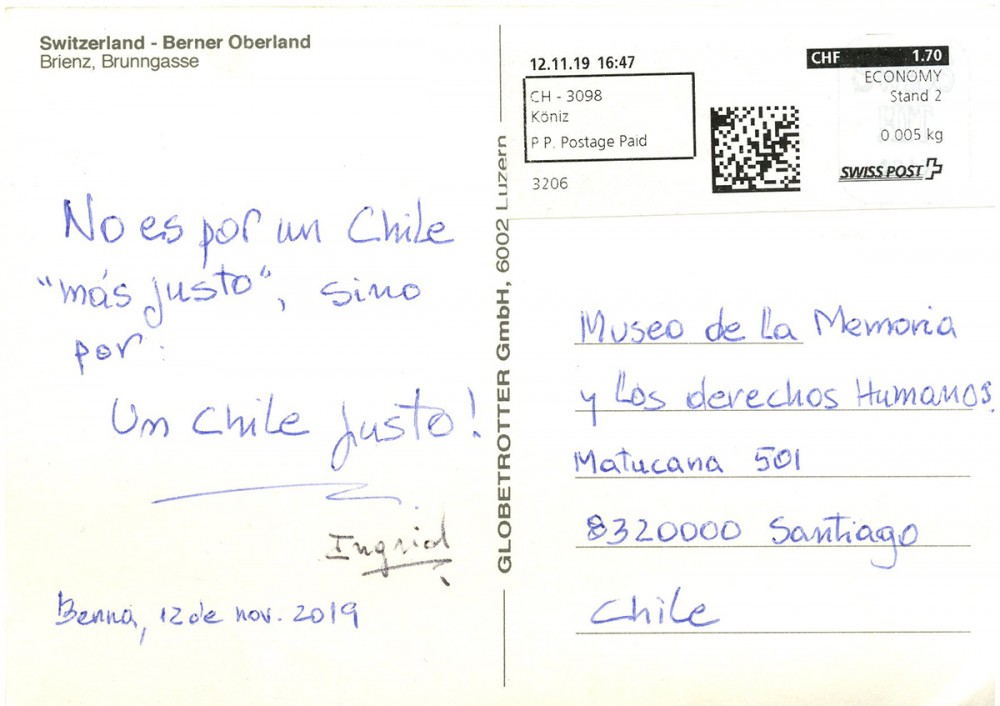 Switzerland - Berner Oberland
Brienz, Brunngasse
No es por un Chile
“más justo”, sino
por:
Un Chile justo!
Ingrid
Berna, 12 de nov. 2019
GLOBETROTTER GmbH, 6002 Luzern
12.11.19 16:47
CH - 3098
Köniz
P P. Postage Paid
3206
CHF 1.70
ECONOMY
Stand 2
0 005 kg
SWISS POST
Museo de La Memoria
y Los derechos Humanos.
Matucana 501
8320000 Santiago
Chile